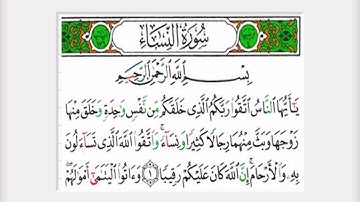 سُورَةُ النِّسَاءِ
بِسْمِ ٱللَّهِ ٱلرَّحْمَٰنِ ٱلرَّحِيمِ
يَٰٓأَيُّهَا ٱلنَّاسُ ٱتَّقُوا۟ رَبَّكُمُ ٱلَّذِى خَلَقَكُم مِّن نَّفْسٍ وَٰحِدَةٍ وَخَلَقَ مِنْهَا
زَوْجَهَا وَبَثَّ مِنْهُمَا رِجَالًا كَثِيرًا وَنِسَآءً ۚ وَٱتَّقُوا۟ ٱللَّهَ ٱلَّذِى تَسَآءَلُونَ
بِهِۦ وَٱلْأَرْحَامَ ۚ إِنَّ ٱللَّهَ كَانَ عَلَيْكُمْ رَقِيبًا ﴿١﴾ وَءَاتُوا۟ ٱلْيَتَٰمَىٰٓ أَمْوَٰلَهُمْ ۖ